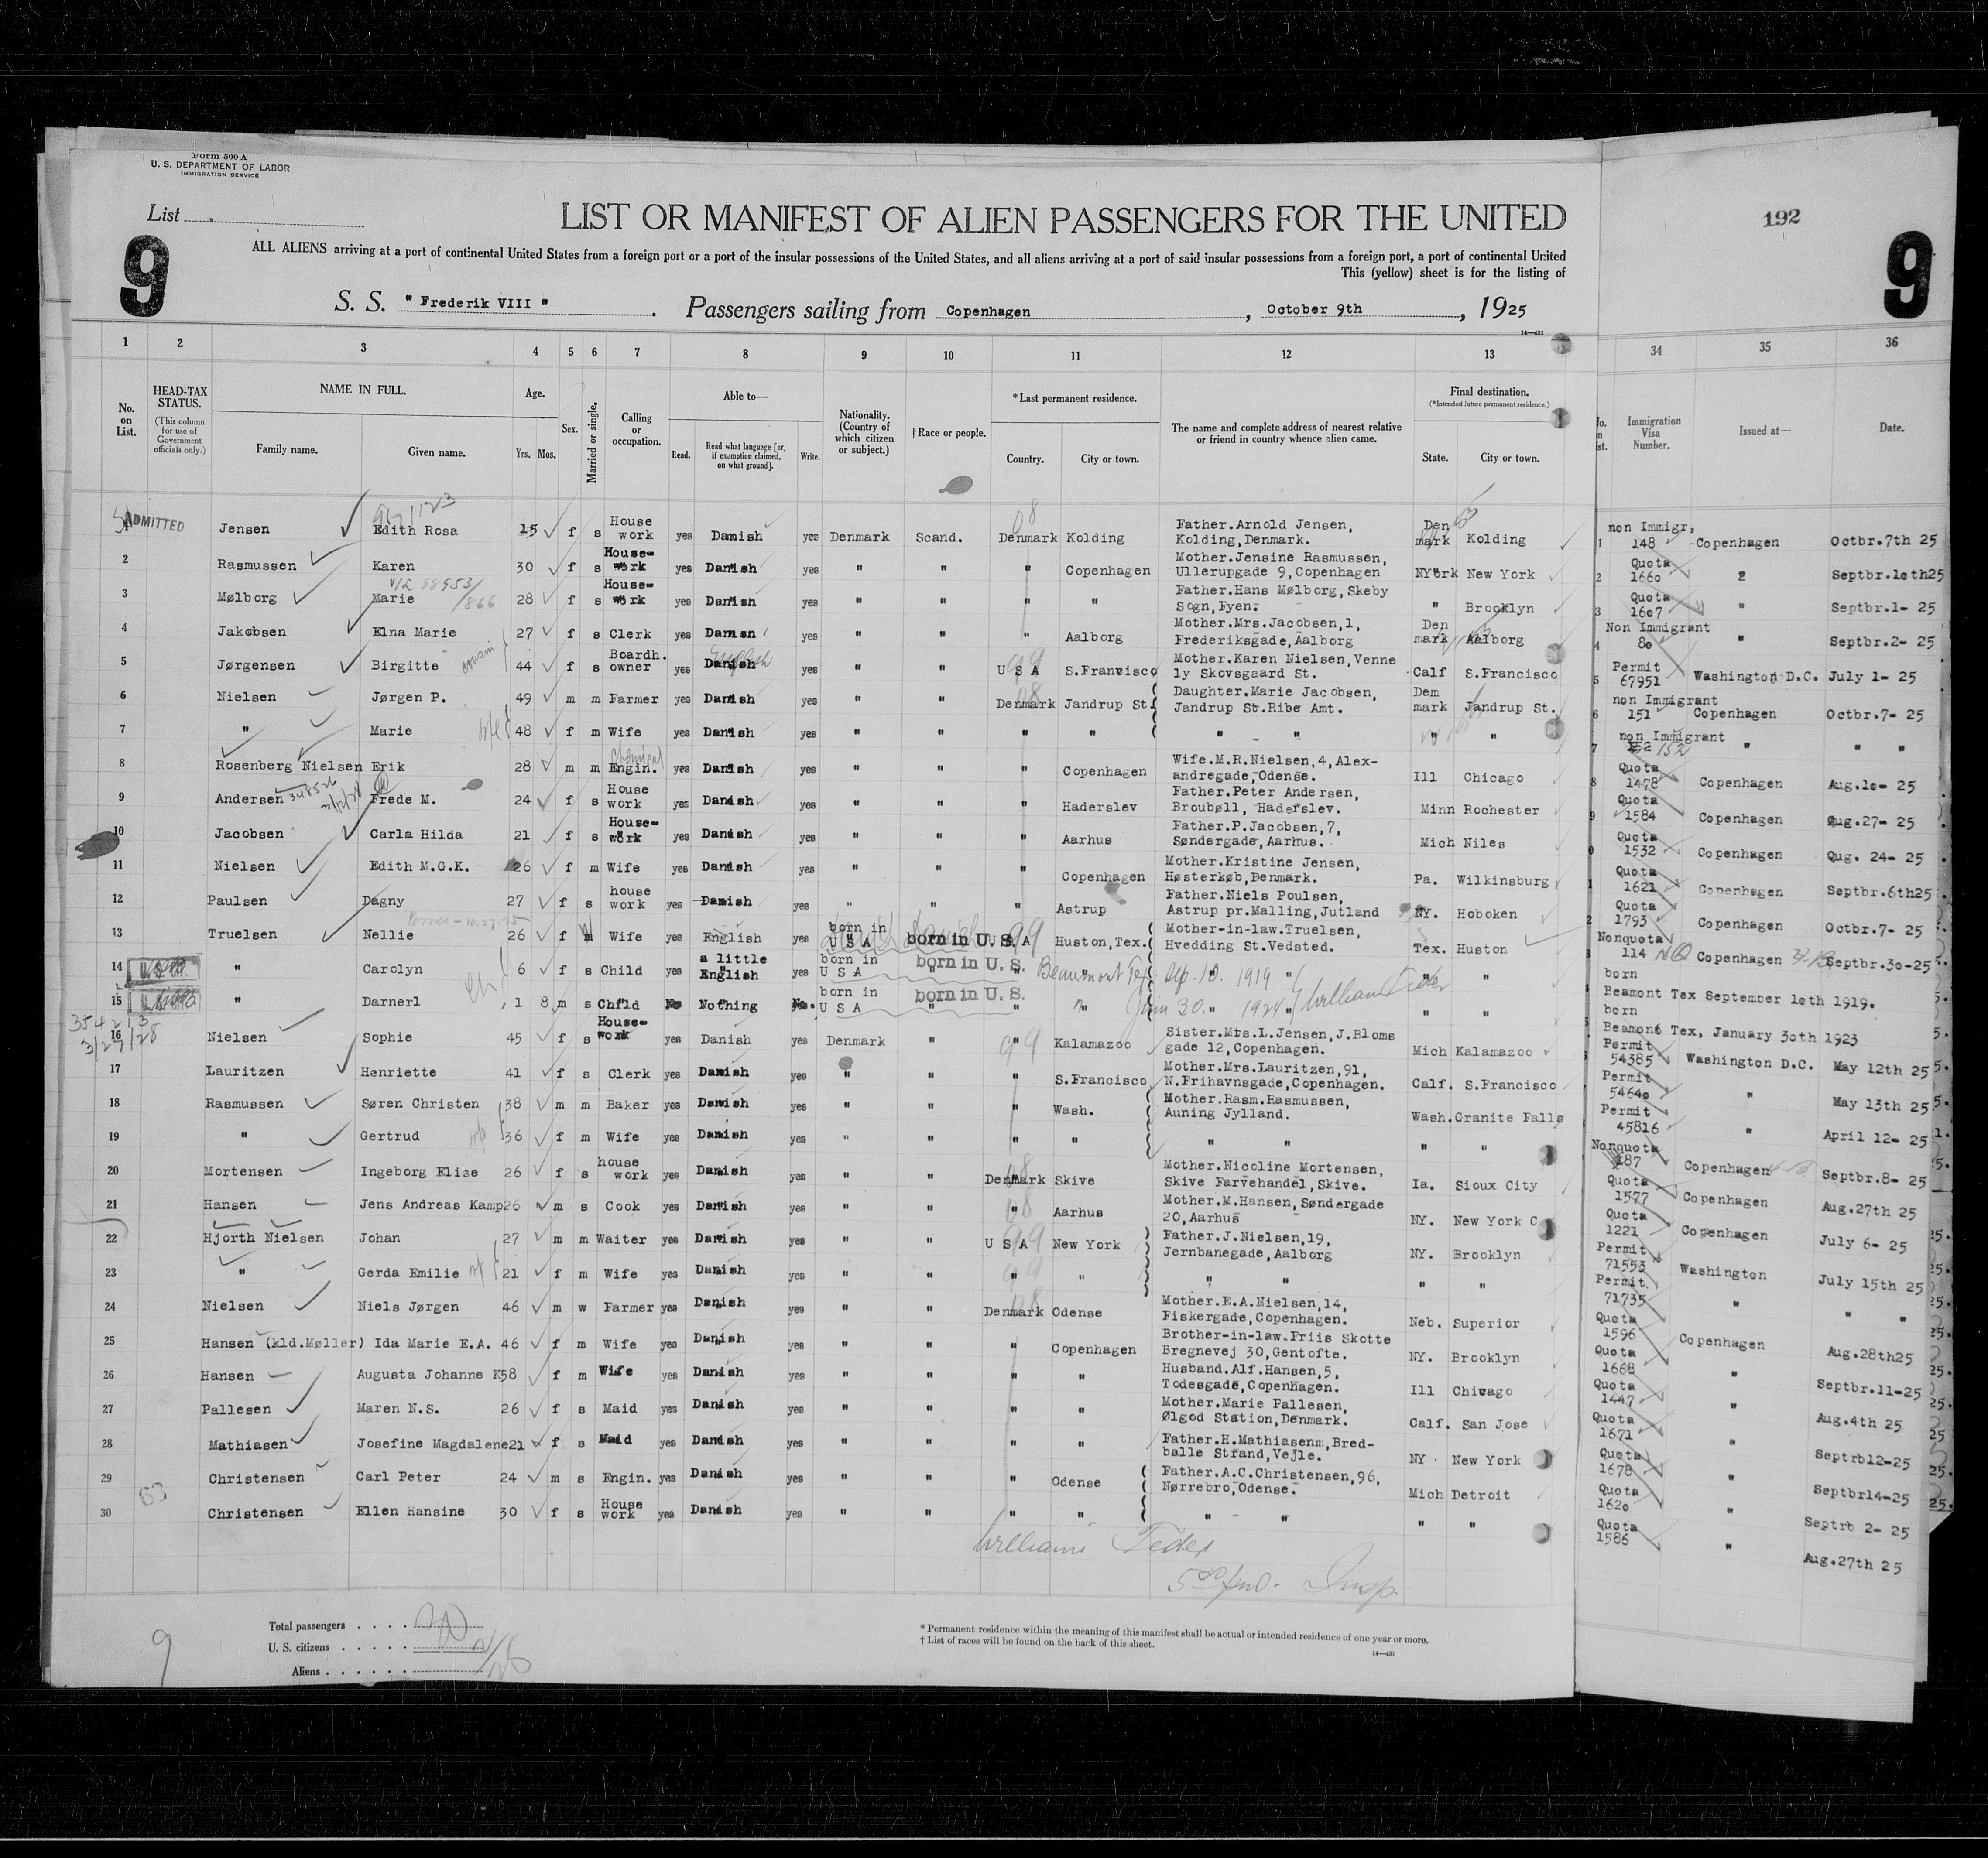 Form 500 A
U. S. DEPARTMENT OF LABOR
IMMIGRATION SERVICE
List
9
LIST OR MANIFEST OF ALIEN PASSENGERS FOR THE UNITED
ALL ALIENS arriving at a port of continental United States from a foreign port or a port of the insular possessions of the United States, and all aliens arriving at a port of said insular possessions from a foreign port, a port of continental United
This (yellow) sheet is for the listing of
S. S. " Frederik VIII " . Passengers sailing from Copenhagen , October 9th , 1925
14—431
192
9
1 2 3 4 5 6 7 8 9 10 11 12 13 34 35 36
No. on List. HEAD-TAX STATUS. (This column for use of Government officials only.) NAME IN FULL. Family name. Given name. Age. Yrs. Mos. Sex. Married or single. Calling or occupation. Able to— Read. Read what language [or, if exemption claimed, on what ground]. Write. Nationality. (Country of which citizen or subject.) †Race or people. *Last permanent residence. Country. City or town. The name and complete address of nearest relative or friend in country whence alien came. Final destination. (*Intended future permanent residence.) State. City or town. Immigration Visa Number. Issued at— Date.
ADMITTED
1 Jensen Edith Rosa 15 f s House work yes Danish yes Denmark Scand. Denmark Kolding Father.Arnold Jensen, Kolding,Denmark. Den mark Kolding non Immigr, 148 Copenhagen Octbr.7th 25
2 Rasmussen Karen 30 f s House- work yes Danish yes " " " Copenhagen Mother.Jensine Rasmussen, Ullerupgade 9,Copenhagen NYork New York Quota 1660 " Septbr.10th25
3 Mølborg Marie 28 f s House- work yes Danish yes " " " " Father.Hans Mølborg,Skeby Sogn,Fyen. " Brooklyn Quota 1607 " Septbr.1- 25
4 Jakobsen Elna Marie 27 f s Clerk yes Danish yes " " " Aalborg Mother.Mrs.Jacobsen,1, Frederiksgade,Aalborg Den mark Aalborg Non Immigrant 80 " Septbr.2- 25
5 Jørgensen Birgitte 44 f s Boardh. owner yes Danish English yes " " U S A S.Francisco Mother.Karen Nielsen,Venne ly Skovsgaard St. Calf S.Francisco Permit 67951 Washington D.C. July 1- 25
6 Nielsen Jørgen P. 49 m m Farmer yes Danish yes " " Denmark Jandrup St. Daughter.Marie Jacobsen, Jandrup St.Ribe Amt. Dem mark Jandrup St. non Immigrant 151 Copenhagen Octbr.7- 25
7 " Marie 48 f m Wife yes Danish yes " " " " " " " " non Immigrant 152 " " "
8 Rosenberg Nielsen Erik 28 m m Chemical Engin. yes Danish yes " " " Copenhagen Wife.M.R.Nielsen,4,Alex- andregade,Odense. Ill Chicago Quota 1478 Copenhagen Aug.10- 25
9 Andersen Frede M. 24 f s House work yes Danish yes " " " Haderslev Father.Peter Andersen, Broubøll, Haderslev. Minn Rochester Quota 1584 Copenhagen Aug.27- 25
10 Jacobsen Carla Hilda 21 f s House- work yes Danish yes " " " Aarhus Father.P.Jacobsen,7, Søndergade,Aarhus. Mich Niles Quota 1532 Copenhagen Qug. 24- 25
11 Nielsen Edith M.G.K. 26 f m Wife yes Danish yes " " " Copenhagen Mother.Kristine Jensen, Høsterkøb,Denmark. Pa. Wilkinsburg Quota 1621 Copenhagen Septbr.6th25
12 Paulsen Dagny 27 f s house work yes Danish yes " " " Astrup Father.Niels Poulsen, Astrup pr.Malling,Jutland NY. Hoboken Quota 1793 Copenhagen Octbr.7- 25
13 Truelsen Nellie 26 f m Wife yes English yes born in U S A born in U. S. A Huston,Tex. Mother-in-law.Truelsen, Hvedding St.Vedsted. Tex. Huston Nonquota 114 Copenhagen Septbr.30-25
14 " Carolyn 6 f s Child yes a little English yes born in U S A born in U. S. " Beaumont Tex Sep. 10. 1919 " " " born Beamont Tex September 10th 1919.
15 " Darnerl 1 8 m s Child No Nothing No. born in U S A born in U. S. " " Jan 30. 1924 " William Teder " " born Beamont Tex, January 30th 1923
354213
3/27/28
16 Nielsen Sophie 45 f s House- work yes Danish yes Denmark " " Kalamazoo Sister.Mrs.L.Jensen,J.Bloms gade 12,Copenhagen. Mich Kalamazoo Permit 54385 Washington D.C. May 12th 25
17 Lauritzen Henriette 41 f s Clerk yes Danish yes " " " S.Francisco Mother.Mrs.Lauritzen,91, N.Frihavnsgade,Copenhagen. Calf. S.Francisco Permit 54640 " May 13th 25
18 Rasmussen Søren Christen 38 m m Baker yes Danish yes " " " Wash. Mother.Rasm.Rasmussen, Auning Jylland. Wash. Granite Falls Permit 45816 " April 12- 25
19 " Gertrud 36 f m Wife yes Danish yes " " " " " " " " Nonquota 187 Copenhagen Septbr.8- 25
20 Mortensen Ingeborg Elise 26 f s house work yes Danish yes " " Denmark Skive Mother.Nicoline Mortensen, Skive Farvehandel,Skive. Ia. Sioux City Quota 1577 Copenhagen Aug.27th 25
21 Hansen Jens Andreas Kamp 26 m s Cook yes Danish yes " " " Aarhus Mother.M.Hansen,Søndergade 20,Aarhus NY. New York C Quota 1221 Copenhagen July 6- 25
22 Hjorth Nielsen Johan 27 m m Waiter yes Danish yes " " U S A New York Father.J.Nielsen,19, Jernbanegade,Aalborg NY. Brooklyn Permit 71553 Washington July 15th 25
23 " Gerda Emilie 21 f m Wife yes Danish yes " " " " " " " " Permit 71735 " " "
24 Nielsen Niels Jørgen 46 m w Farmer yes Danish yes " " Denmark Odense Mother.E.A.Nielsen,14, Fiskergade,Copenhagen. Neb. Superior Quota 1596 Copenhagen Aug.28th25
25 Hansen (kld.Møller) Ida Marie E.A. 46 f m Wife yes Danish yes " " " Copenhagen Brother-in-law.Friis Skotte Bregnevej 30,Gentofte. NY. Brooklyn Quota 1668 " Septbr.11-25
26 Hansen Augusta Johanne K 58 f m Wife yes Danish yes " " " " Husband.Alf.Hansen,5, Todesgade,Copenhagen. Ill Chivago Quota 1447 " Aug.4th 25
27 Pallesen Maren N.S. 26 f s Maid yes Danish yes " " " " Mother.Marie Pallesen, Ølgod Station,Denmark. Calf. San Jose Quota 1671 " Septrb12-25
28 Mathiasen Josefine Magdalene 21 f s Maid yes Danish yes " " " " Father.H.Mathiasenm,Bred- balle Strand,Vejle. NY New York Quota 1678 " Septbr14-25
29 Christensen Carl Peter 24 m s Engin. yes Danish yes " " " Odense Father.A.C.Christensen,96, Nørrebro,Odense. Mich Detroit Quota 1620 " Septrb 2- 25
30 Christensen Ellen Hansine 30 f s House work yes Danish yes " " " " " " " " Quota 1586 " Aug.27th 25
William Teder
Insp.
Total passengers
U. S. citizens
Aliens
9
* Permanent residence within the meaning of this manifest shall be actual or intended residence of one year or more.
† List of races will be found on the back of this sheet.
14—431